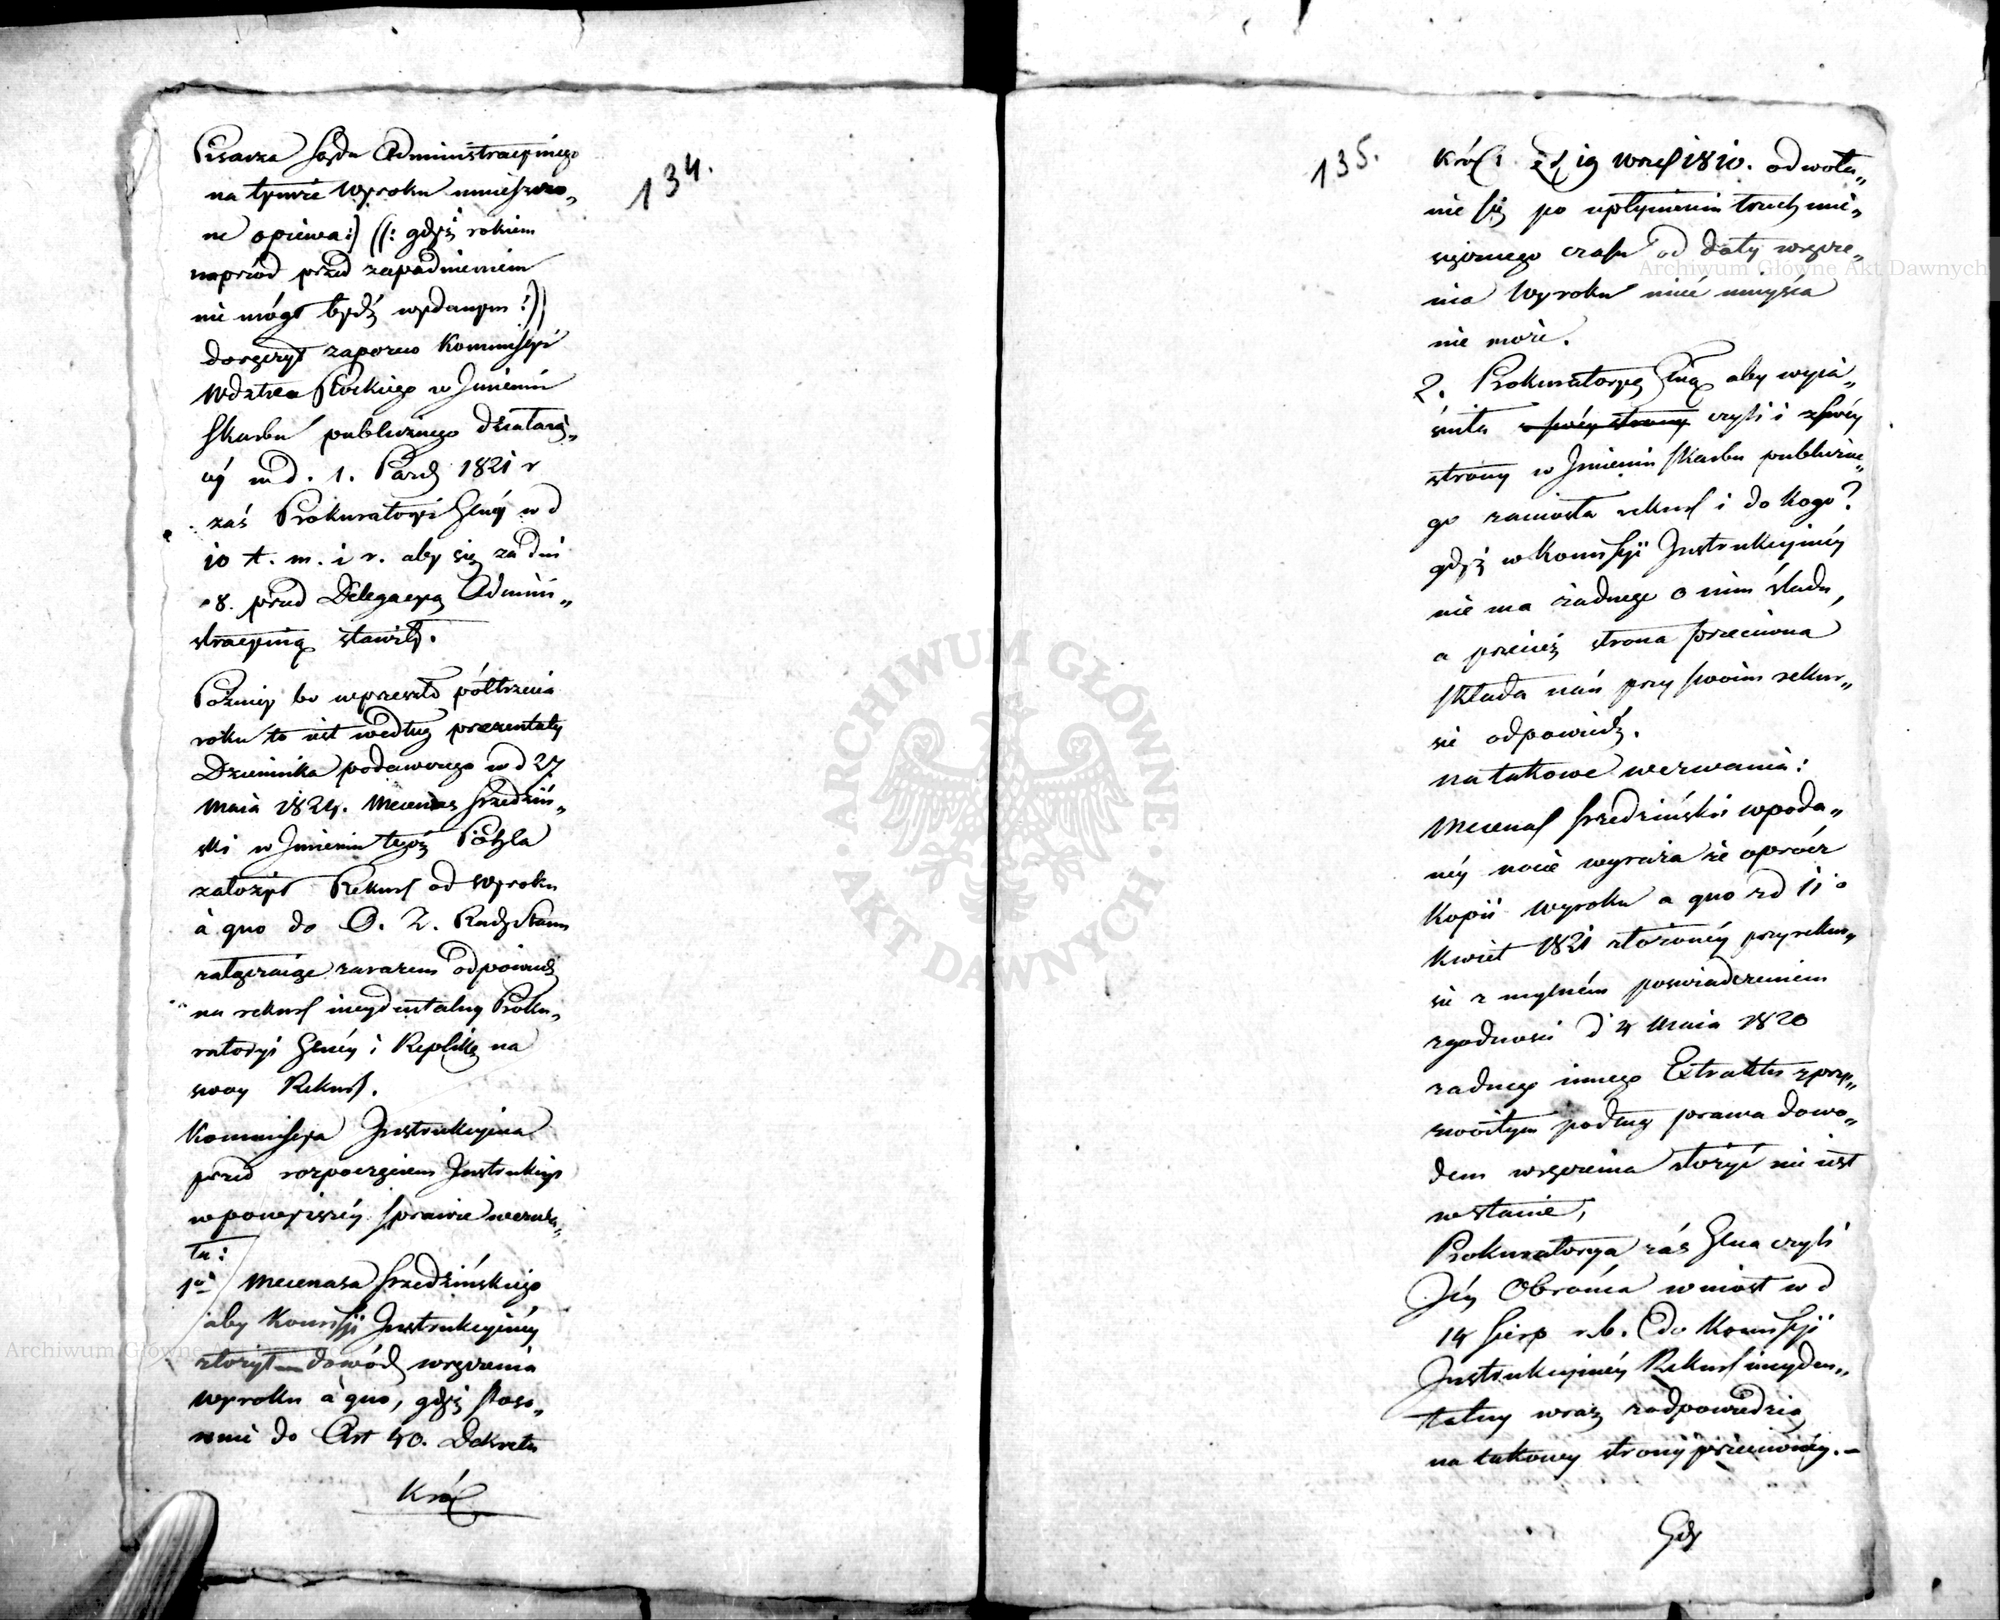 134.
Pisarza Sądu Administracyinego
na tymże Wyroku umieszczo„
ne opiewa:) ((: gdyż rokiem
naprzód przed zapadnieniem
nie mógł bydź wydanym :))
doręczył zapozew Kommissyi
Wdztwa Płockiego w Jmieniu
Skarbu publicznego działaią„
cy w d. 1. Pazd 1821 r
zaś Prokuratoryi Glnéy w d
10 t. m. i r. aby się za dni
8. przed Delegacyą Admini„
stracyiną stawiły.
Pozniey bo w przeszło półtrzecia
roku to iest według prezentaty
Dziennika podawczego w d 27
Maia 1824. Mecenas Srzedziń„
ski w Jmieniu tegoż
założył Rekurs od Wyroku
à quo do O. Z. Rady Stanu
załączaiąc zarazem odpowiedź
na rekurs incydentalny Proku„
ratoryi Glnéy i Replikę na
swoy Rekurs.
Kommissya Jnstrukcyina
przed rozpoczęciem Jnstrukcyi
w powyższéy sprawie wezwa„
ła:
1o Mecenasa Srzedzińskiego
aby Komissyi Jnstrukcyinéy
złożył dowód wręczenia
Wyroku à quo, gdyż stoso„
wnie do Art 40. Dekretu
Król
135.
Król: z d 19 Wrześ 1810. odwoła„
nie się po upłynieniu trzech mie„
sięcznego czasu od daty wręcze„
nia Wyroku mieć mieysca
nie może.
2. Prokuratoryą Glną aby wyia„
śniła z swéy strony czyli i z swéy
strony w Jmieniu Skarbu publiczne„
go zaniosła rekurs i do kogo?
gdyż w Komissyi Jnstrukcyinéy
nie ma żadnego o nim śladu,
a przecież strona przeciwna
składa nań przy swoim rekur„
sie odpowiedź.
na takowe wezwania:
Mecenas Srzedziński w poda„
néy nocie wyraża że oprócz
Kopii wyroku a quo z d 11o
Kwiet 1821 złożonéy przy rekur„
sie z mylném poswiadczeniem
zgodnosci d 4 Maia 1820
żadnego innego Extraktu z przy„
zwoitym podług prawa dowo„
dem wręczenia złożyć nie iest
w stanie,
Prokuratorya zaś Glna czyli
Jéy Obrońca wniosł w d
14 Sierp r.b. do Komissyi
Jnstrukcyinéy Rekurs incyden„
talny wraz z odpowiedzią
na takowy strony przeciwnéy.–
Gdy